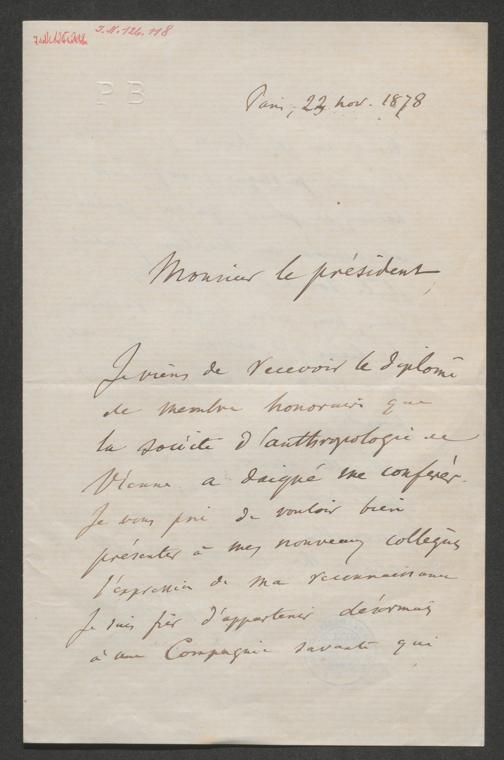 J.N. 126.118
P B
Paris, 23 nov. 1878
Monsieur le président,
Je viens de recevoir le diplôme
de membre honoraire que
la société d'anthropologie de
Vienne a daigné me conférer.
Je vous prie de vouloir bien
présenter à mes nouveaux collègues
l'expression de ma reconnaissance
Je suis fier d'appartenir désormais
à une Compagnie savante qui